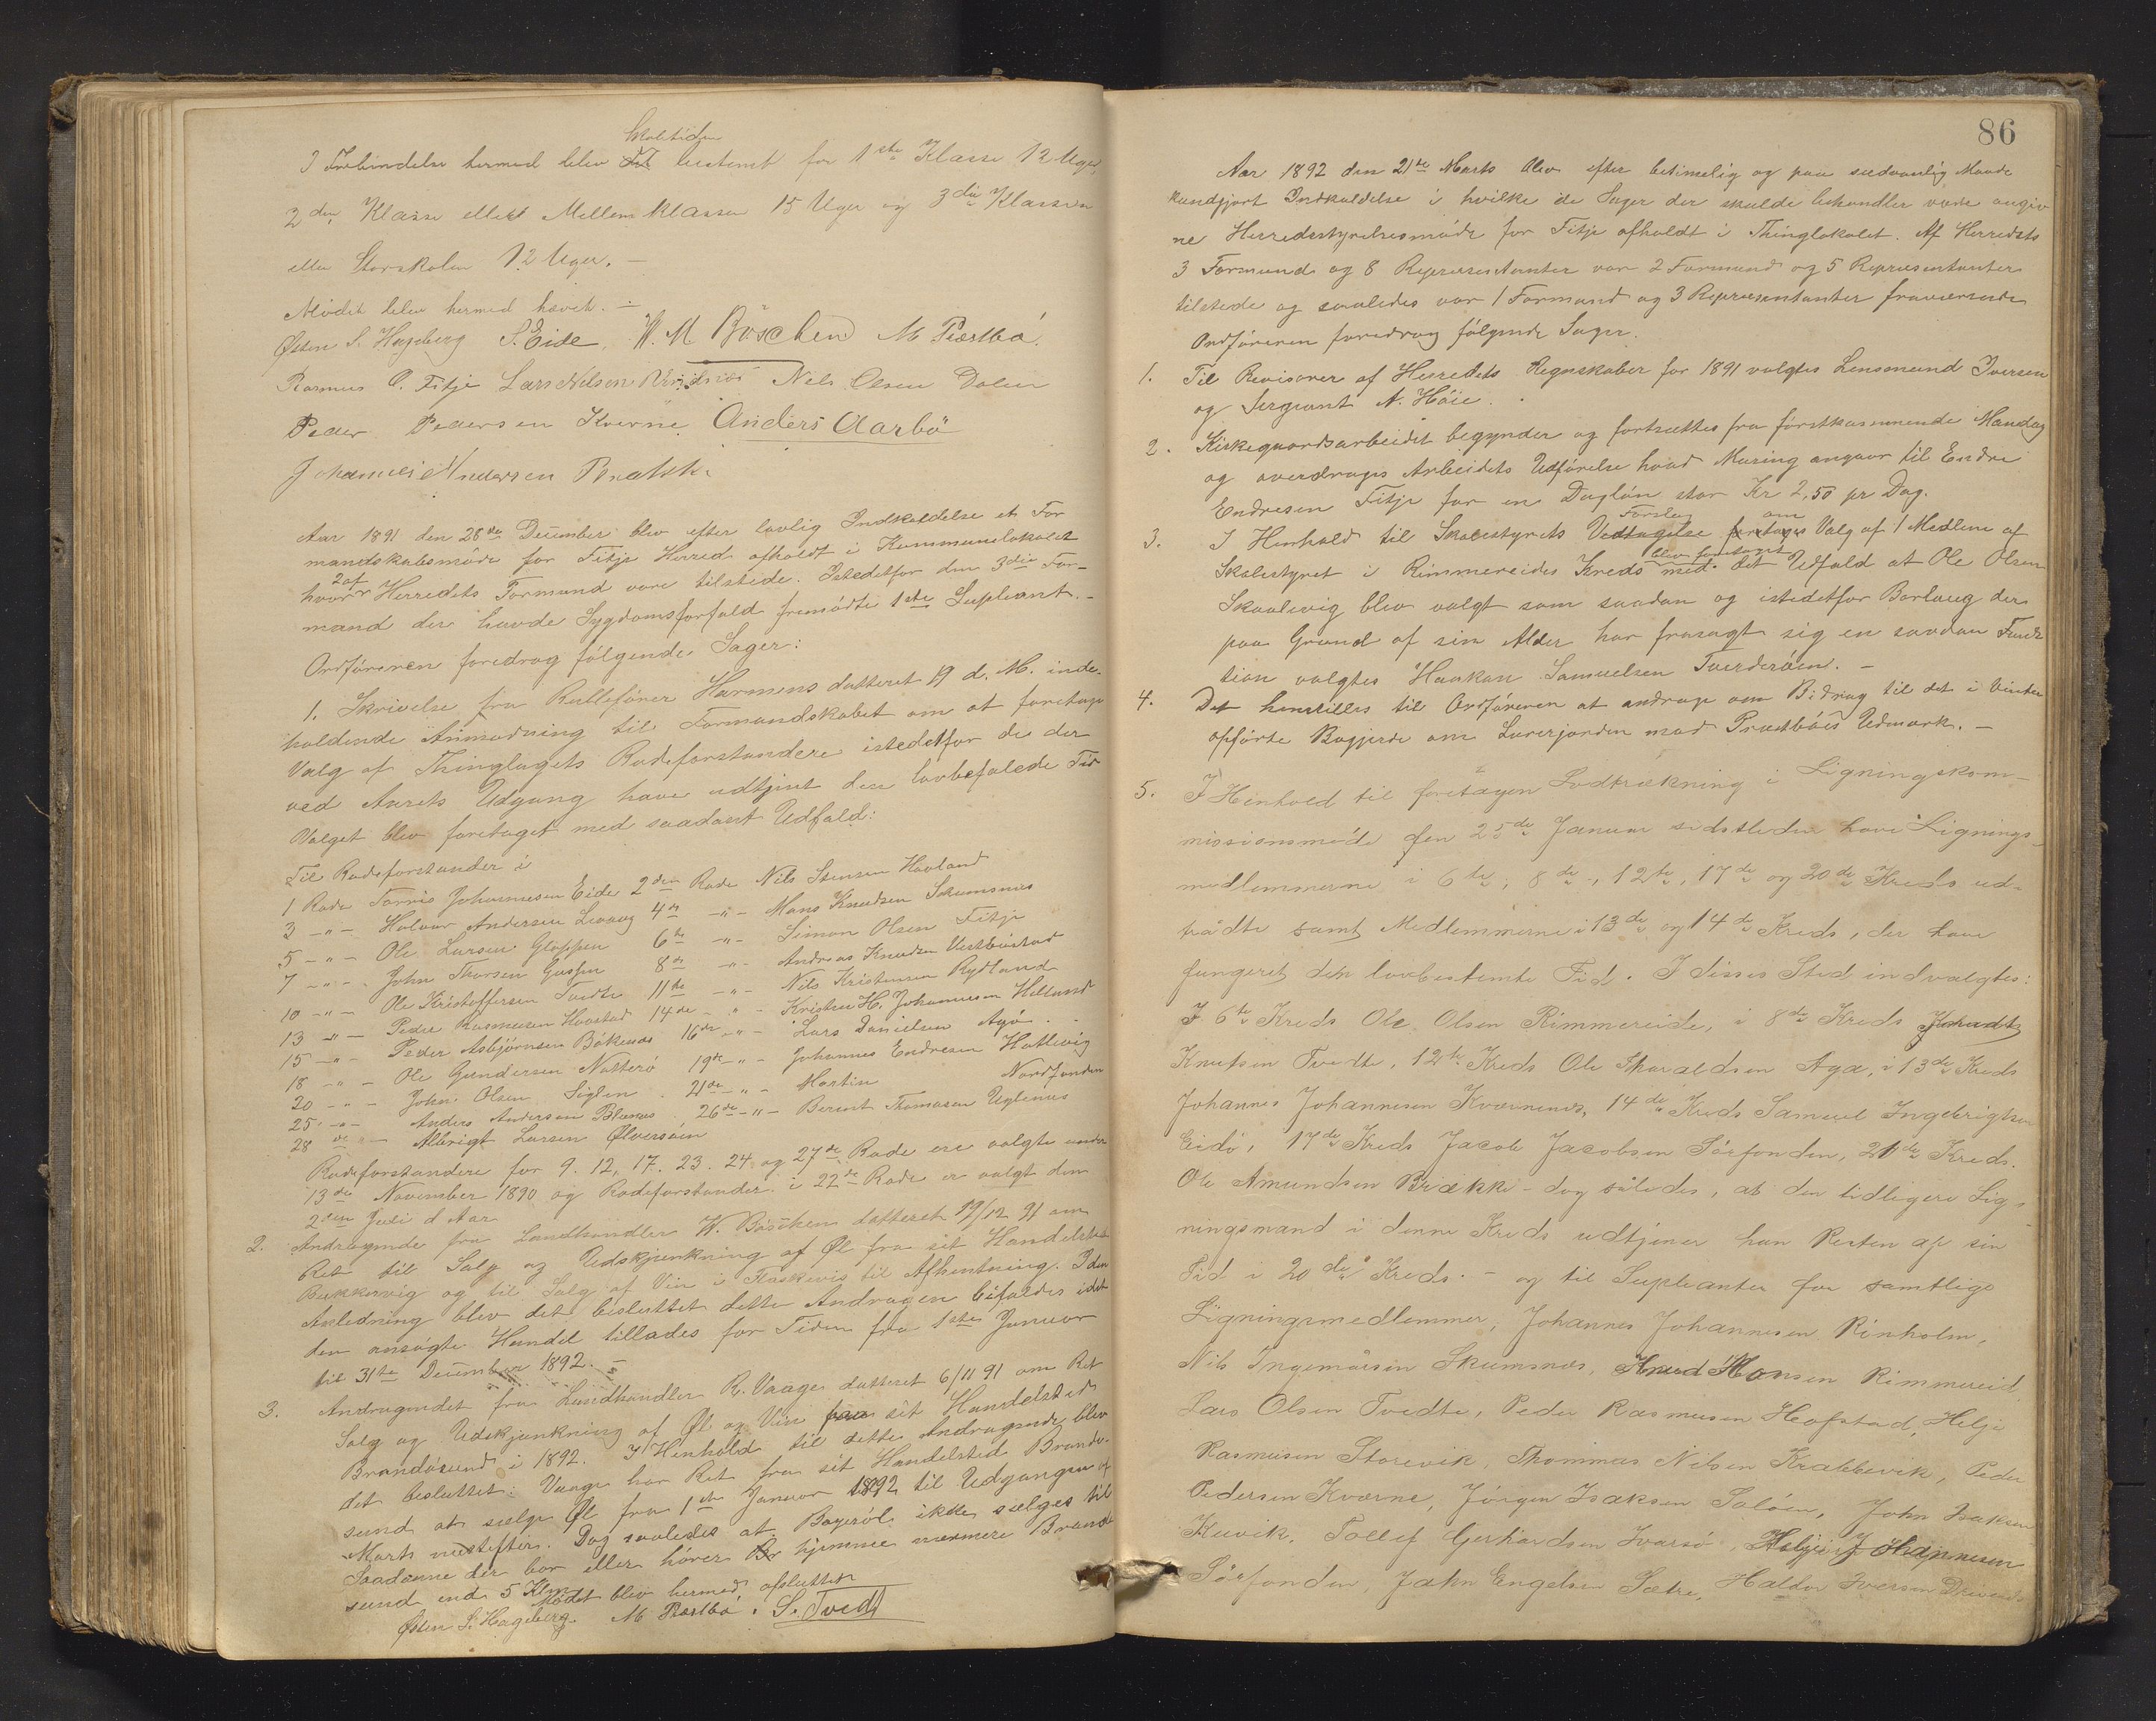 Skoletiden
I Forbindelse hermed blev Tid bestemt for 1ste Klasse 12 Uger,
2den Klasse eller Mellemklassen 15 Uger og 3die Klassen
eller Storskolen 12 Uger. –
Mødet blev hermed hævet. –
Østen S. Hageberg S. Eide. W. M Böschen M Præstbø.
Rasmus O. Fitje Lars Nilsen Nils Olsen Dalen
Peder Pedersen Kverne. Anders Aarbö
Johannes Andersen Brække
Aar 1891 den 28de December blev efter lovlig Indkaldelse et For
mandskabsmøde for Fitje Herred afholdt i Kommunelokalet
hvor 2 af Herredets Formænd vare tilstede. Istedetfor den 3die For-
mand der havde Sygdomsforfald fremmødte 1ste Supleant. –
Ordføreren foredrog følgende Sager:
1. Skrivelse fra Rullefører Harmens datteret 19 d. M. inde-
holdende Anmodning til Formandskabet om at foretage
Valg af Thinglagets Rodeforstandere istedetfor de der
ved Aarets Udgang have udtjent den lovbefalede Tid
Valget blev foretaget med saadant Udfald:
Til Rodeforstander i
1 Rode Tørris Johannesen Eide 2den Rode Nils Stensen Havland
3 -"- Halvor Andersen Levaag 4de -"- Mons Knudsen Skumsnes
5 -"- Ole Larsen Gloppen 6te -"- Simon Olsen Fitje
7 -"- John Thorsen 8de -"- Andreas Knudsen Vestbøstad
10 -"- Ole Kristoffersen Tvedte 11te -"- Nils Kristensen Rydland
13 -"- Peder Rasmusen Havstad 14de -"- Kristen H. Johannesen Helland
15 -"- Peder Asbjørnsen Bökenes 16de -"- Lars Danielsen Agø
18 -"- Ole Gundersen Natterø 19de -"- Johannes Endresen Hatlevig
20 -"- John Olsen Siglen 21de -"- Martin Nordfonden
25 -"- Anders Andersen Blænes 26de -"- Berent Thomasen Uglenes
28 de - Albrigt Larsen Ølversøien
Rodeforstandere for 9. 12, 17. 23. 24 og 27de Rode ere valgte under
13de November 1890 og Rodeforstander i 22de Rode er valgt den
2den Juli d Aar
2. Andragende fra Landhandler W. Böschen datteret 19/12 91 om
Ret til Salg og Udskjænkning af Øl fra sit Handelsted
Bekkervig og til Salg af Vin i Flaskevis til Afhentning. I den
Anledning blev det besluttet dette Andragen bifaldes idet
den ansøgte Handel tillades for Tiden fra 1ste Januar
til 31te December 1892. –
3. Andragendet fra Landhandler R. Vaage datteret 6/11 91 om Ret
Salg og Udskjænkning af Øl og Vin fra sit Handelsted
Brandösund i 1892. I Henhold til dette Andragende blev
det besluttet: Vaage har Ret fra sit Handelsted Brandö-
sund at sælge Øl fra 1ste Januar 1892 til Udgangen af
Marts næstefter. Dog saaledes at Bayerøl ikke sælges til
Saadanne der bor eller hörer Br hjemme nærmere Brandö
sund end 5 Klm
Mødet blev hermed afsluttet
Østen S. Hageberg. M Præstbö. S. Tvedt
86
Aar 1892 den 21de Marts blev efter betimelig og paa sædvanlig Maade
kundgjort Indkaldelse i hvilke de Sager der skulde behandles vare angiv
ne Herredsstyrelsesmøde for Fitje afholdt i Thinglokalet. Af Herredets
3 Formænd og 8 Repræsentanter var 2 Formænd og 5 Repræsentanter
tilstede og saaledes var 1 Formand og 3 Repræsentanter fraværende
Ordføreren foredrog følgende Sager.
1. Til Revisorer af Herredets Regnskaber for 1891 valgtes Lensmand Iversen
og Sergeant A. Höie.
2. Kirkegaardsarbeidet begynder og fortsættes fra førstkommende Mandag
og overdrages Arbeidets Udførelse hvad Muring angaar til Endre
Endresen Fitje for en Dagløn stor Kr 2,50 pr Dag.
Forslag om
3. I Henhold til Skolestyrets Vedtagelse foretages Valg af 1 Medlem af
blev foretaget
Skolestyret i Rimmereides Kreds med det Udfald at Ole Olsen
Skaalevig blev valgt som saadan og istedetfor Borlaug der
paa Grund af sin Alder har frasagt sig en saadan Funk
tion valgtes Haakon Samuelsen Tverderøen. –
4. Det henstilles til Ordføreren at andrage om Bidrag til det i Vinter
opførte Bøgjerde om Lærerjorden mod Præstbøes Udmark. –
5. I Henhold til foretagen Lodtrækning i Ligningskom-
missionsmøde den 25de Januar sidstleden have Lignings-
medlemmerne i 6te, 8de, 12te, 17de og 20de Kreds ud-
trådte samt Medlemmerne i 13de og 14de Kreds, der have
fungeret den lovbestemte Tid. I disses Sted indvalgtes:
I 6te Kreds Ole Olsen Rimmereide, i 8de Kreds
Knutsen Tvedte, 12te Kreds Ole Haraldsen Aga, i 13de Kreds
Johannes Johannesen Kværnenes, 14de Kreds Samuel Ingebrigtsen
Eidø, 17de Kreds Jacob Jacobsen Sørfonden, 21de Kreds.
Ole Amundsen Brække – dog således, at den tidligere Lig-
ningsmand i denne Kreds udtjener han Resten af sin
Tid i 20de Kreds. – og til Supleanter for samtlige
Ligningsmedlemmer, Johannes Johannesen Rinholm,
Nils Ingemårsen Skumsnes, Knud Monsen Rimmereid,
Lars Olsen Tvedte, Peder Rasmusen Hafstad, Helje
Rasmusen Storevik, Thommas Nilsen Krabbevik, Peder
Pedersen Kværne, Jørgen Isaksen Saløen, John Isaksen
Kuvik, Tollef Gerhardsen Ivarsø, Helje Johannesen
Sørfonden, John Engelsen Sætre, Haldor Iversen